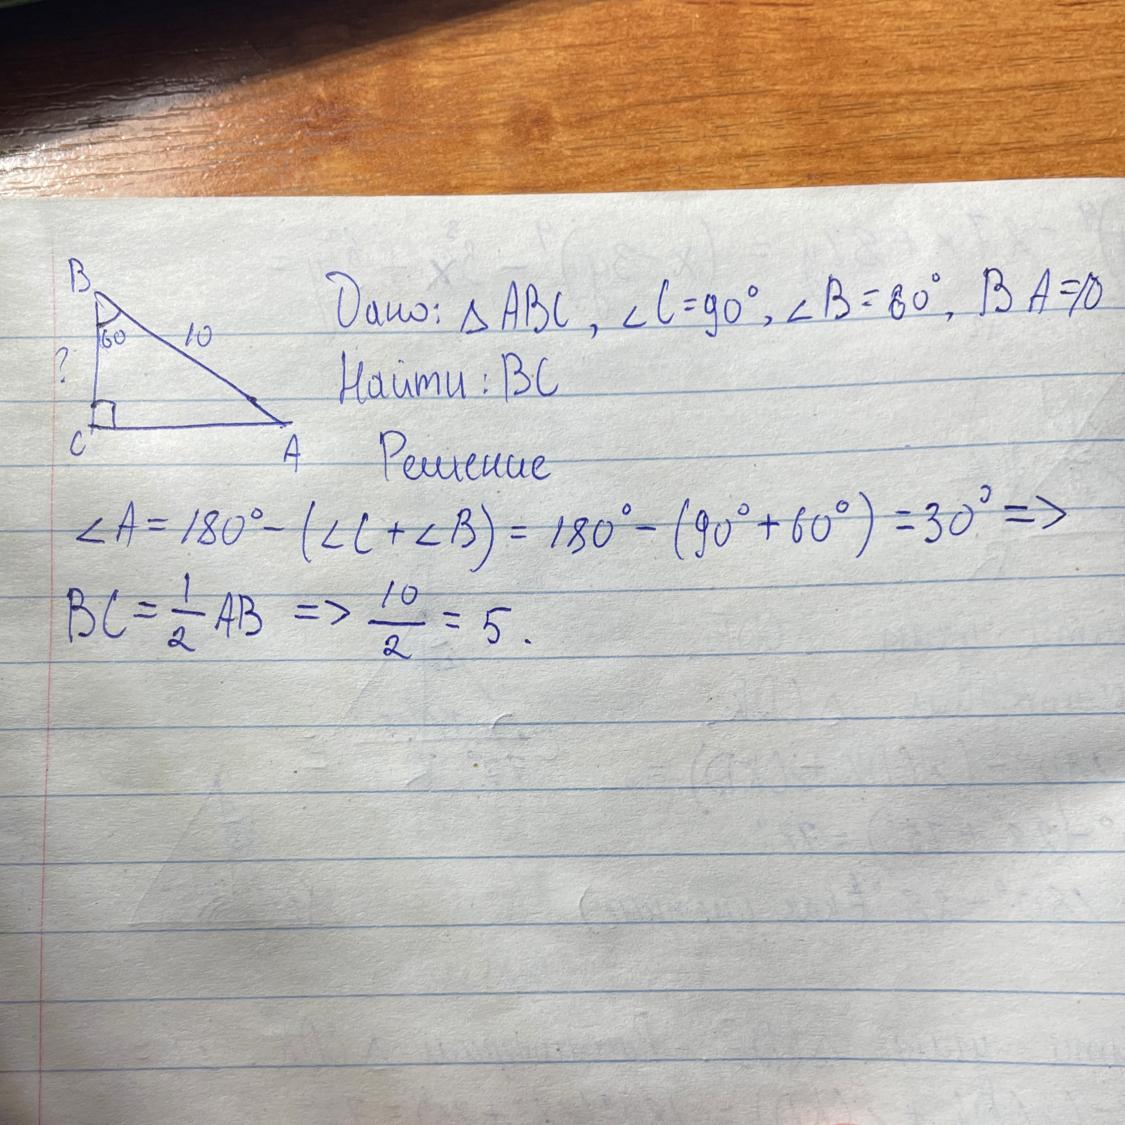 B
60
10
?
C
A
Дано: △ ABC, ∠C=90°, ∠B=60°, BA=10
Найти: BC
Решение
∠A = 180° - (∠C + ∠B) = 180° - (90° + 60°) = 30° =>
BC = 1/2 AB => 10/2 = 5.